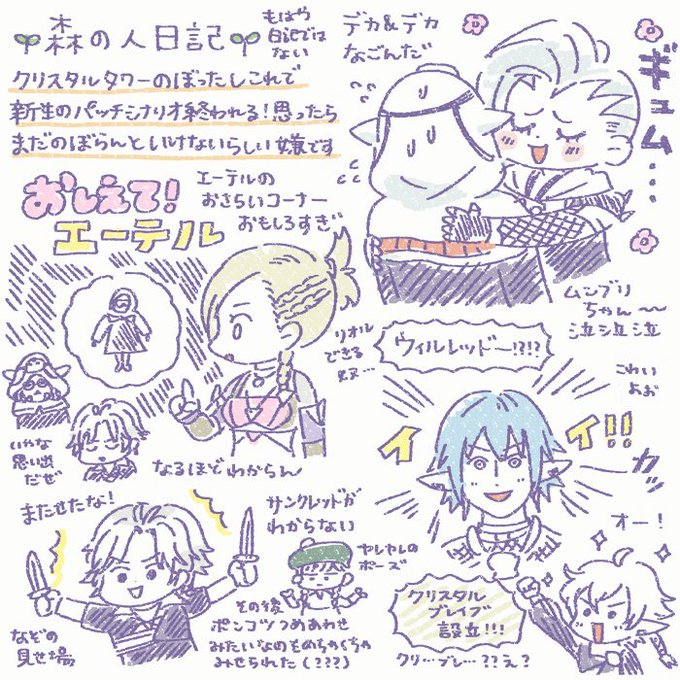 森の人日記
もはや
日記では
ない
クリスタルタワーのぼったしこれで
新生のパッチシナリオ終われる!思ったら
まだのぼらんといけないらしい嫌です
デカ&デカ
なごんだ
ギュム…
ムンブリ
ちゃん〜
泣泣泣
おしえて!
エーテル
エーテルの
おさらいコーナー
おもしろすぎ
リオル
できる
奴…
いやな
思い出
だぜ
なるほどわからん
ウィルレッドー!?!?
こわい
よお
イイ!!
カッ
オー!
クリスタル
ブレイブ
設立!!!
クリ…ブレ…??え?
またせたな!
なぞの
見せ場
サンクレッドが
わからない
ヤレヤレの
ポーズ
その後
ポンコツつめあわせ
みたいなのをめちゃくちゃ
みせられた(???)